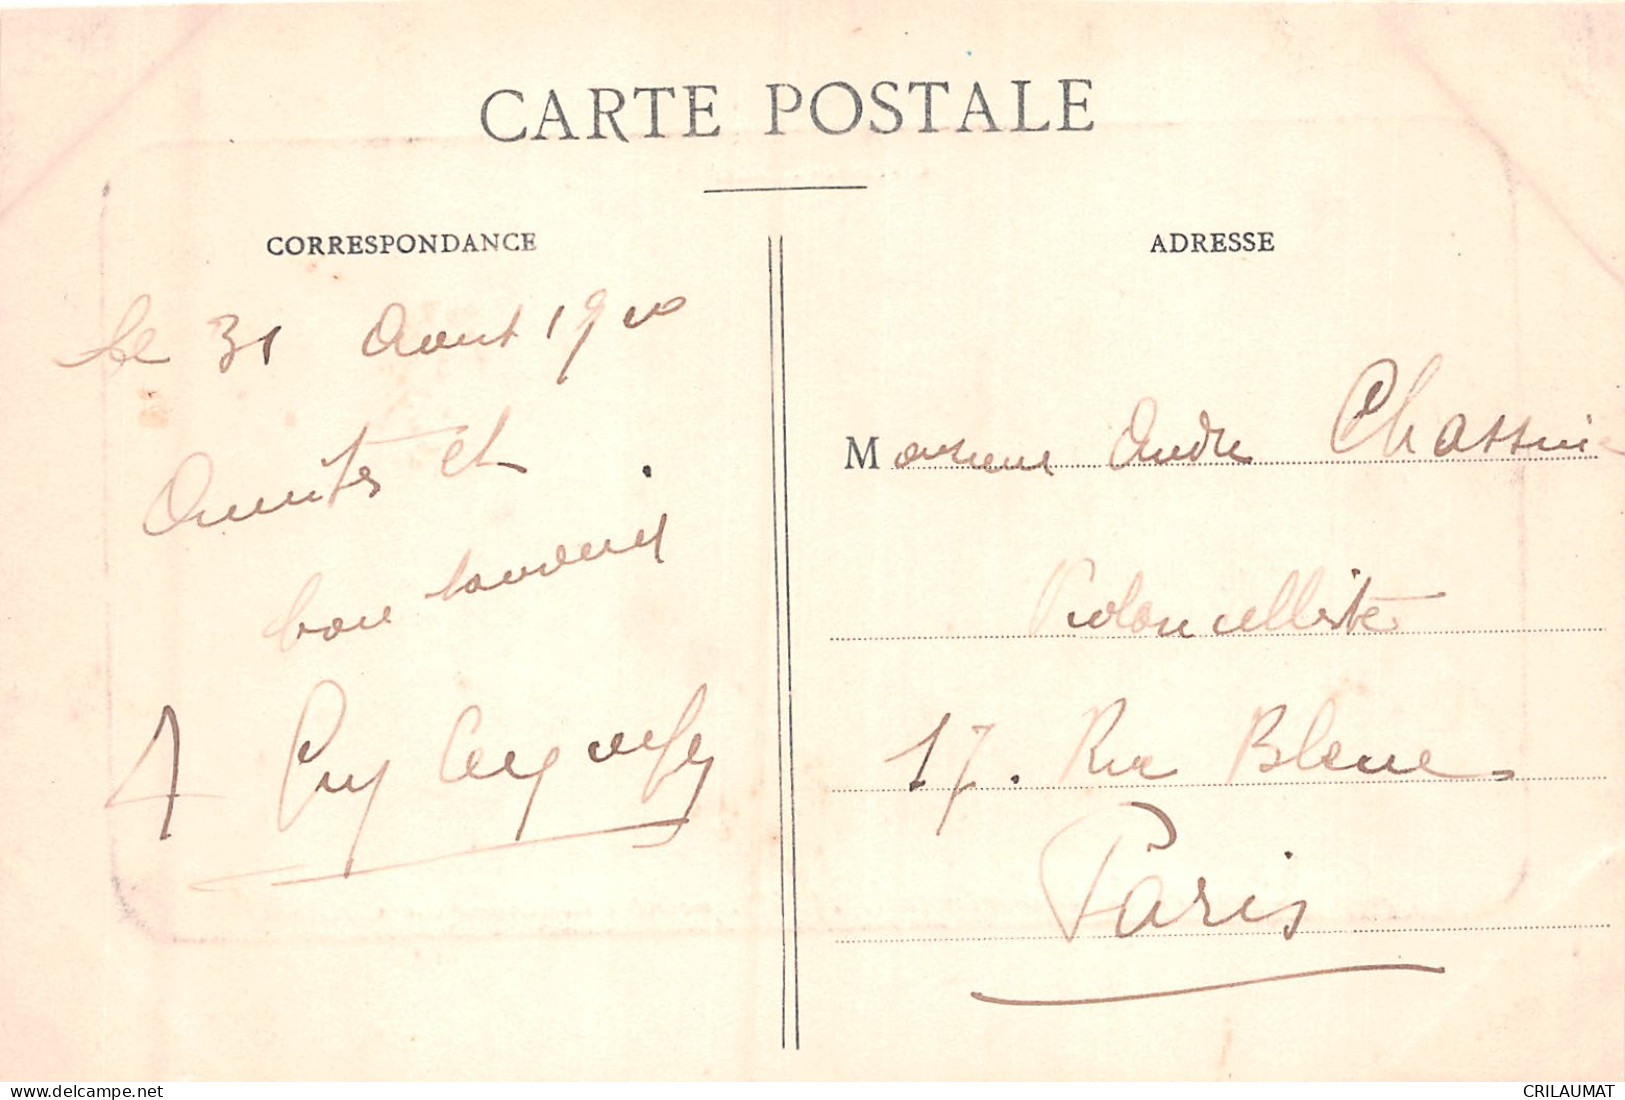 CARTE POSTALE
CORRESPONDANCE
ADRESSE
le 31 Aout 1900
Amitiés et
bon souvenir
Monsieur André Chassin
Violoncelliste
17. Rue Bleue
Paris
delcampe.net
CRILAUMAT